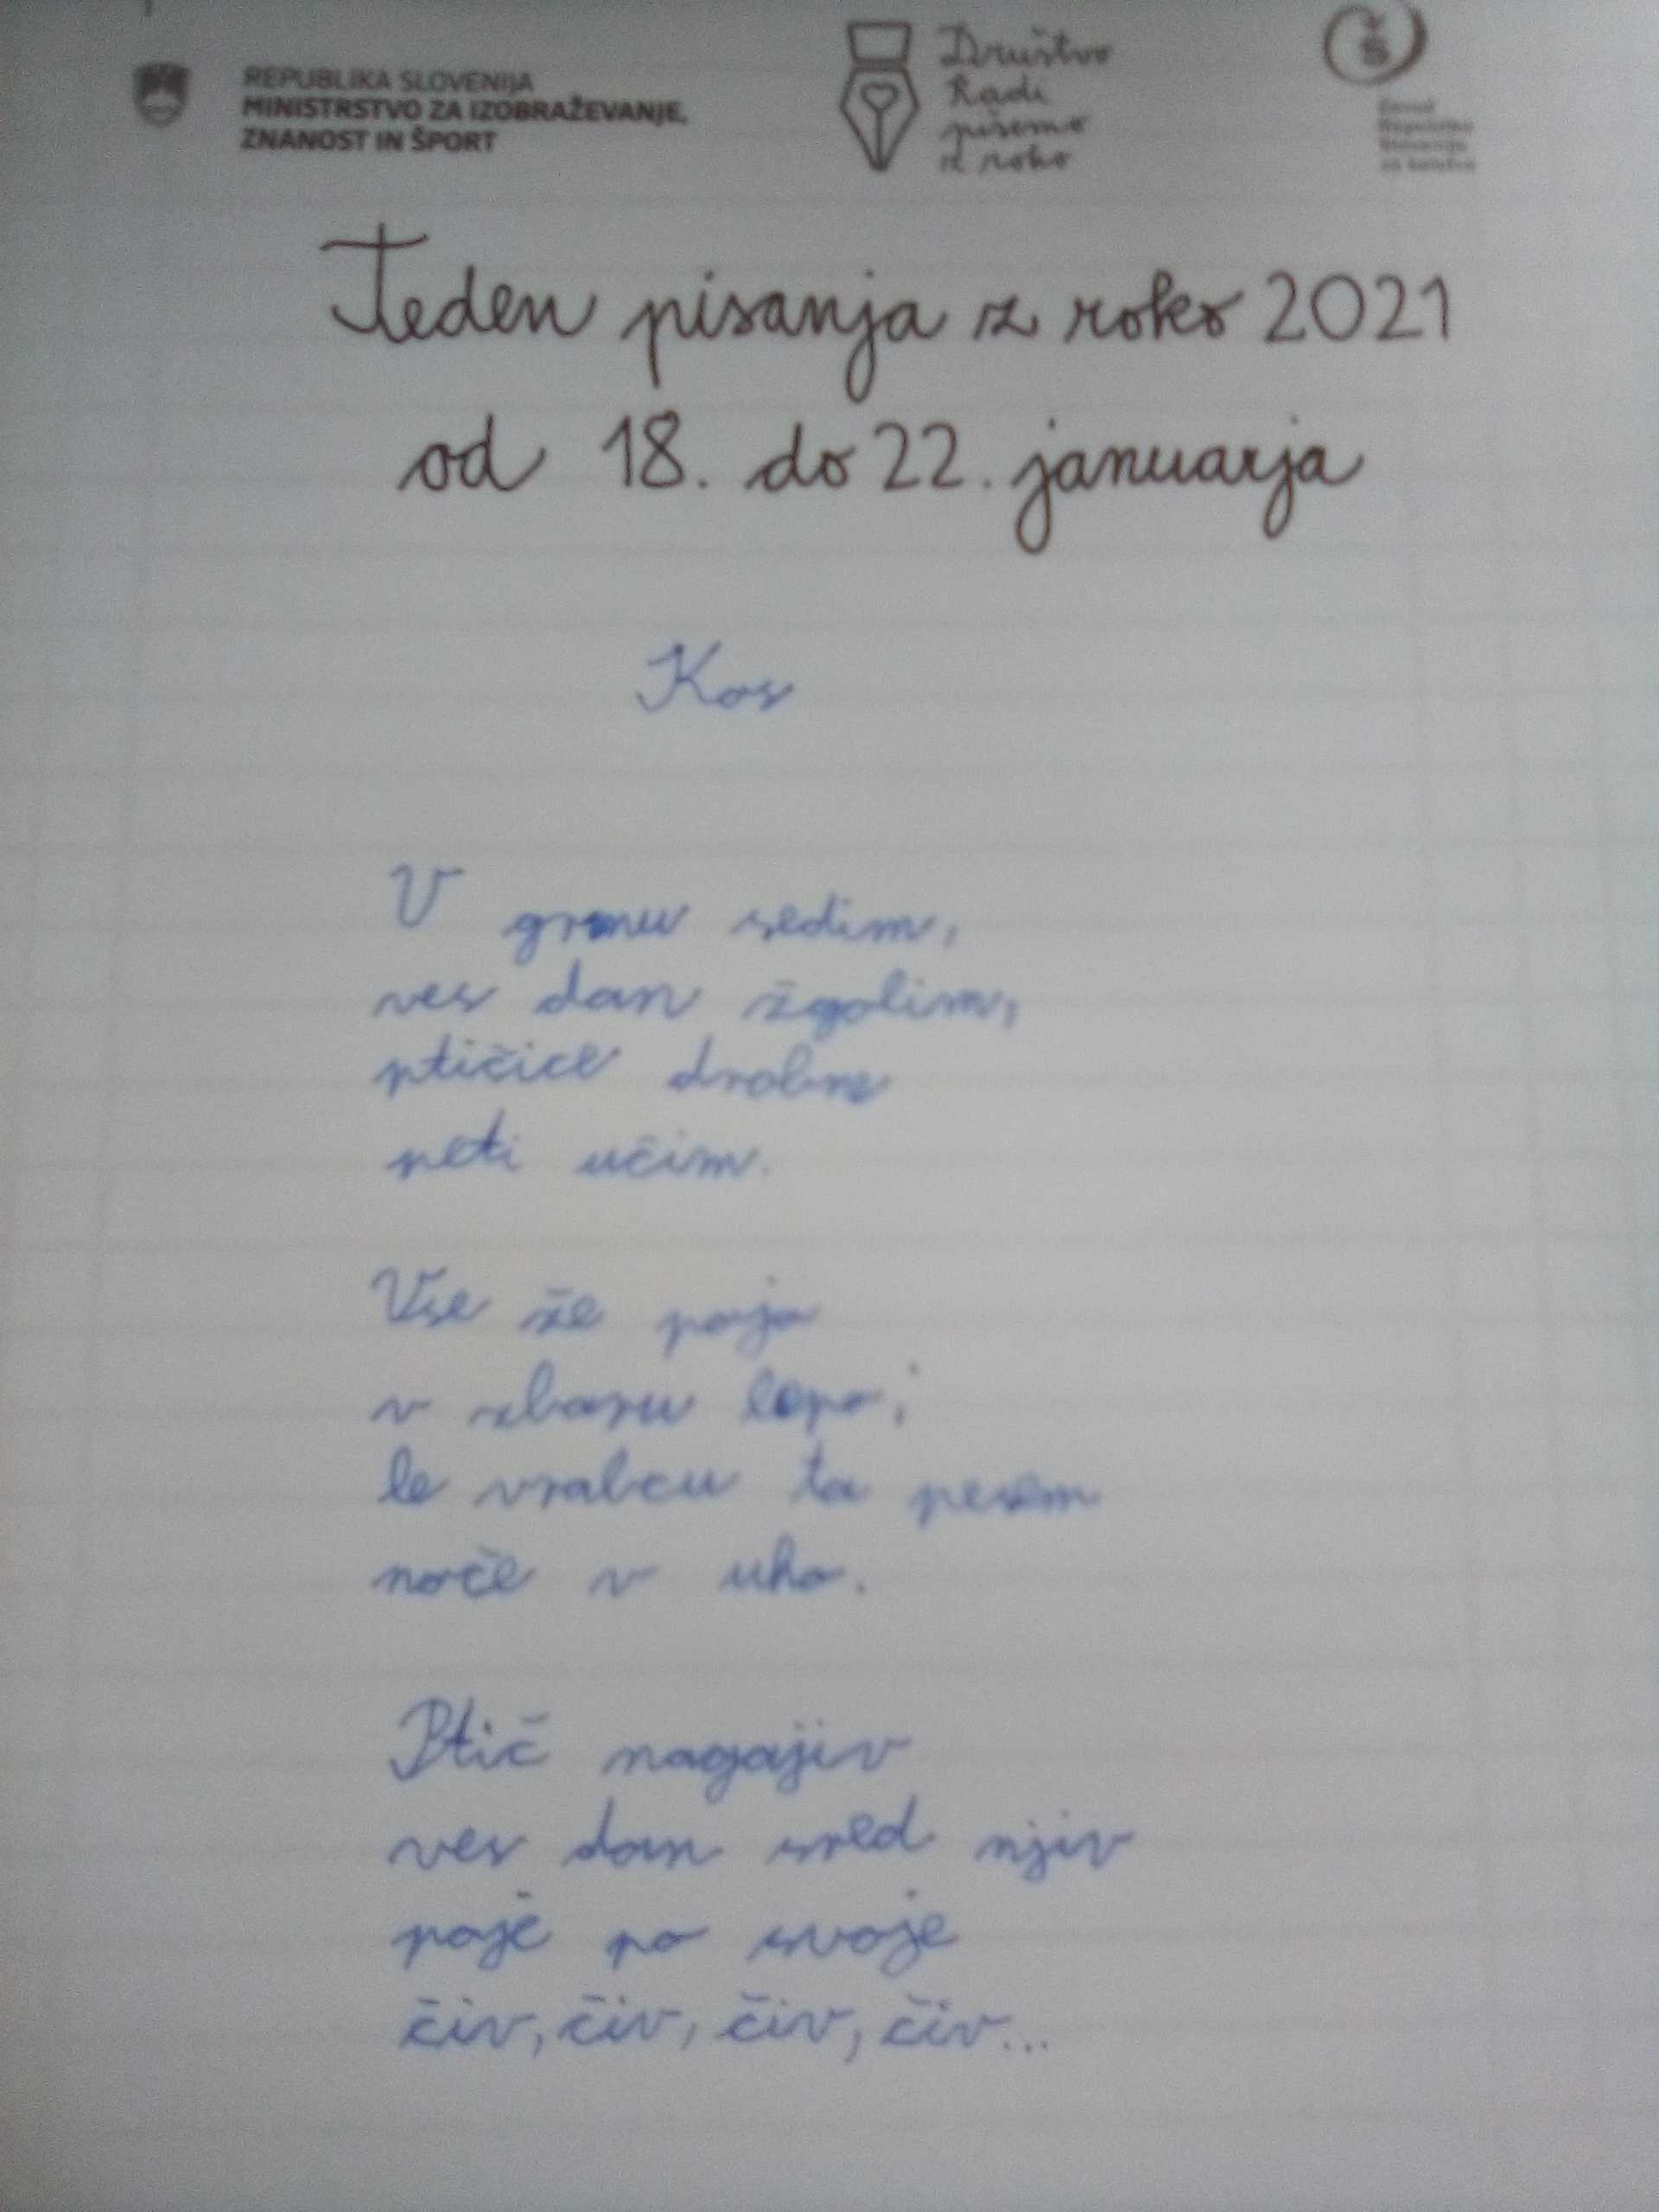 REPUBLIKA SLOVENIJA
MINISTRSTVO ZA IZOBRAŽEVANJE,
ZNANOST IN ŠPORT
Društvo
Radi
pišemo
z roko
Zavod
Republike
Slovenije
za šolstvo
Teden pisanja z roko 2021
od 18. do 22. januarja
Kos
V grmu sedim,
ves dan žgolim,
ptičice drobne
peti učim.
Vse že pojo
v zboru lepo;
le vrabcu ta pesem
noče v uho.
Ptič nagajiv
ves dan sred njiv
poje po svoje
čiv, čiv, čiv, čiv...